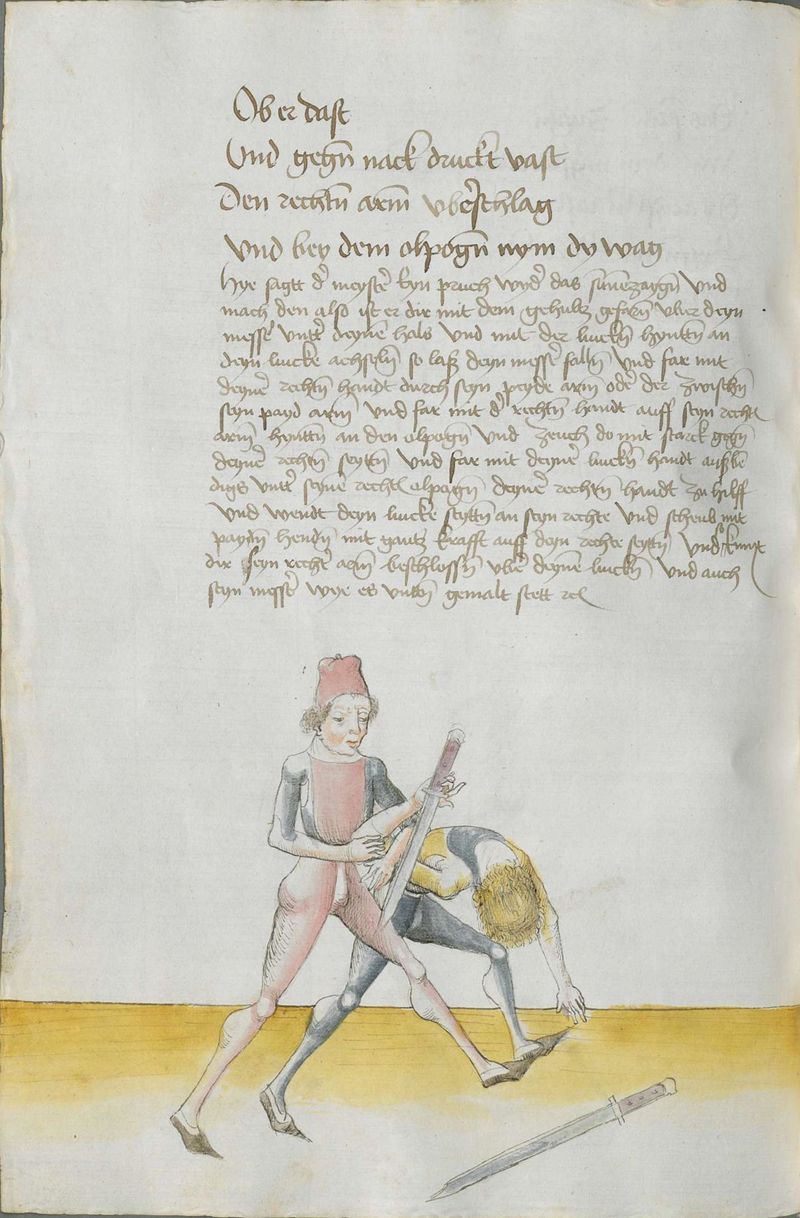 Ob er dast
Und gegn̄ nack druckt vast
Den rechtn̄ arm̄ vberschlag
Und bey dem elpogn̄ nym dy wag
Hye sagtt d' meyster eyn pruch wyd' das sūnenzaygn̄ Und
mach den also ist er dir mit dem gehultz gefarn̄ vber deyn
messer vntter deynē hals Und mit der linckn̄ hynttn̄ an
deyn lincke achseln̄ so laß deyn messer falln̄ Und far mit
deyner rechtn̄ handt durch seyn peyde arm oder zwischn̄
seyn payd arm̄ Und far mit d' rechtn̄ handt auff seyn recht
arm̄ hynttn̄ an den elpogn̄ Und zeuch do mit starck gegn̄
deyner rechtn̄ seyttn̄ Und far mit deyner linckn̄ handt außbē
digs vntter seynē recht elpogn̄ deyner rechtn̄ handt zu hilff
Und wendt deyn lincke seyttn̄ an seyn rechte Und scheub mit
paydn̄ hendn̄ mit gantz krafft auff deyn rechte seyttn̄ Und so kumt
dir seyn rechter arm̄ beschlossn̄ vber deynē linckn̄ Und auch
seyn messer wye es vnttn̄ gemalt stett